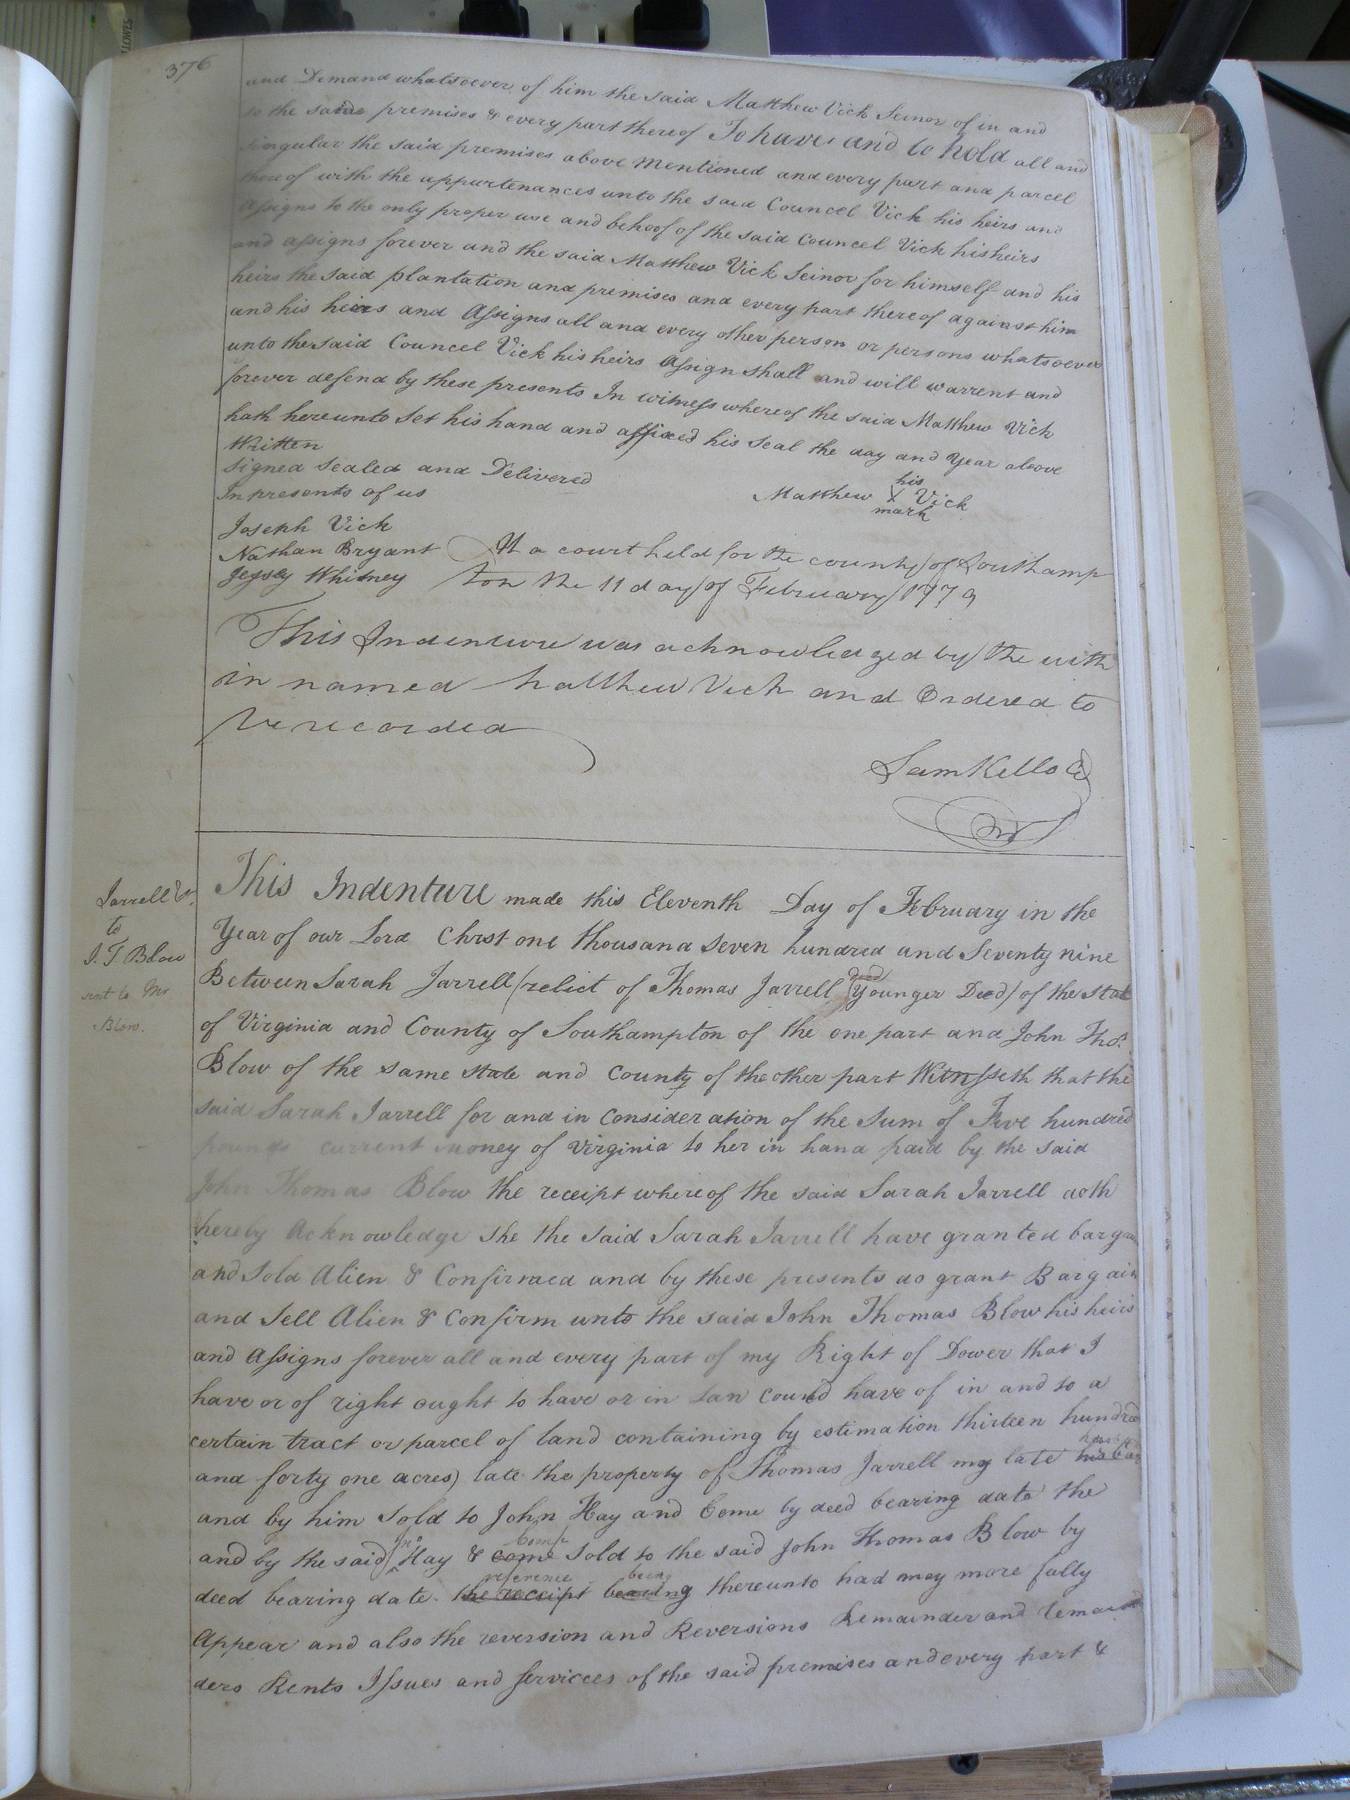 376
and Demand whatsoever of him the said Matthew Vick Seinor of in and
to the said premises & every part thereof To have and to hold all and
singular the said premises above mentioned and every part and parcel
thereof with the appurtenances unto the said Councel Vick his heirs and
Assigns to the only proper use and behoof of the said Councel Vick his heirs
and assigns forever and the said Matthew Vick Seinor for himself and his
heirs the said plantation and premises and every part thereof against him
and his heirs and Assigns all and every other person or persons whatsoever
unto the said Councel Vick his heirs Assign shall and will warrent and
forever defend by these presents In witness whereof the said Matthew Vick
hath hereunto set his hand and affixed his seal the day and Year above
Written
signed sealed and Delivered
In presents of us
his
Matthew X Vick
mark
Joseph Vick
Nathan Bryant
Jessey Whitney
At a court held for the county of Southamp
ton the 11 day of February 1779
This Indenture was acknowledged by the with
in named Matthew Vick and Ordered to
be recorded
Sam Kello
Jarrell &c.
to
J. T Blow
sent to Mr
Blow.
This Indenture made this Eleventh Day of February in the
Year of our Lord Christ one thousand seven hundred and Seventy nine
Between Sarah Jarrell (relict of Thomas Jarrell Younger Deed) of the State
of Virginia and County of Southampton of the one part and John Thos.
Blow of the same state and County of the other part Witnsseth that the
said Sarah Jarrell for and in Consideration of the Sum of Five hundred
pounds current money of Virginia to her in hand paid by the said
John Thomas Blow the receipt whereof the said Sarah Jarrell doth
hereby Acknowledge she the said Sarah Jarrell have granted bargain
and Sold Alien & Confirmed and by these presents do grant Bargain
and Sell Alien & Confirm unto the said John Thomas Blow his heirs
and Assigns forever all and every part of my Right of Dower that I
have or of right ought to have or in Law could have of in and to a
certain tract or parcel of land containing by estimation thirteen hundred
and forty one acres) late the property of Thomas Jarrell my late
and by him Sold to John Hay and Come by deed bearing date the
and by the said Jno Hay & Comp Sold to the said John Thomas Blow by
reference being
deed bearing date the receipt bearing thereunto had may more fully
Appear and also the reversion and Reversions Remainder and Remain
ders Rents Issues and services of the said premises and every part &